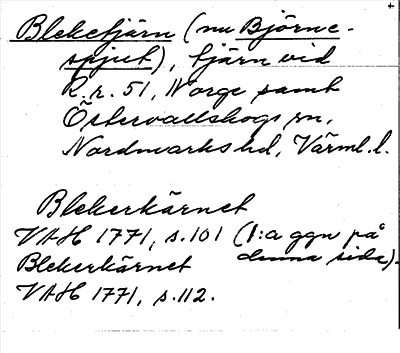 Bleketjärn (nu Björne-
spjut), tjärn vid
R.r. 51, Norge samt
Östervallskogs sn,
Nordmarks hd, Värml. l.
Blekerkärnet
VAH 1771, s. 101 (1:a ggn på
denna sida).
Blekerkärnet
VAH 1771, s. 112.